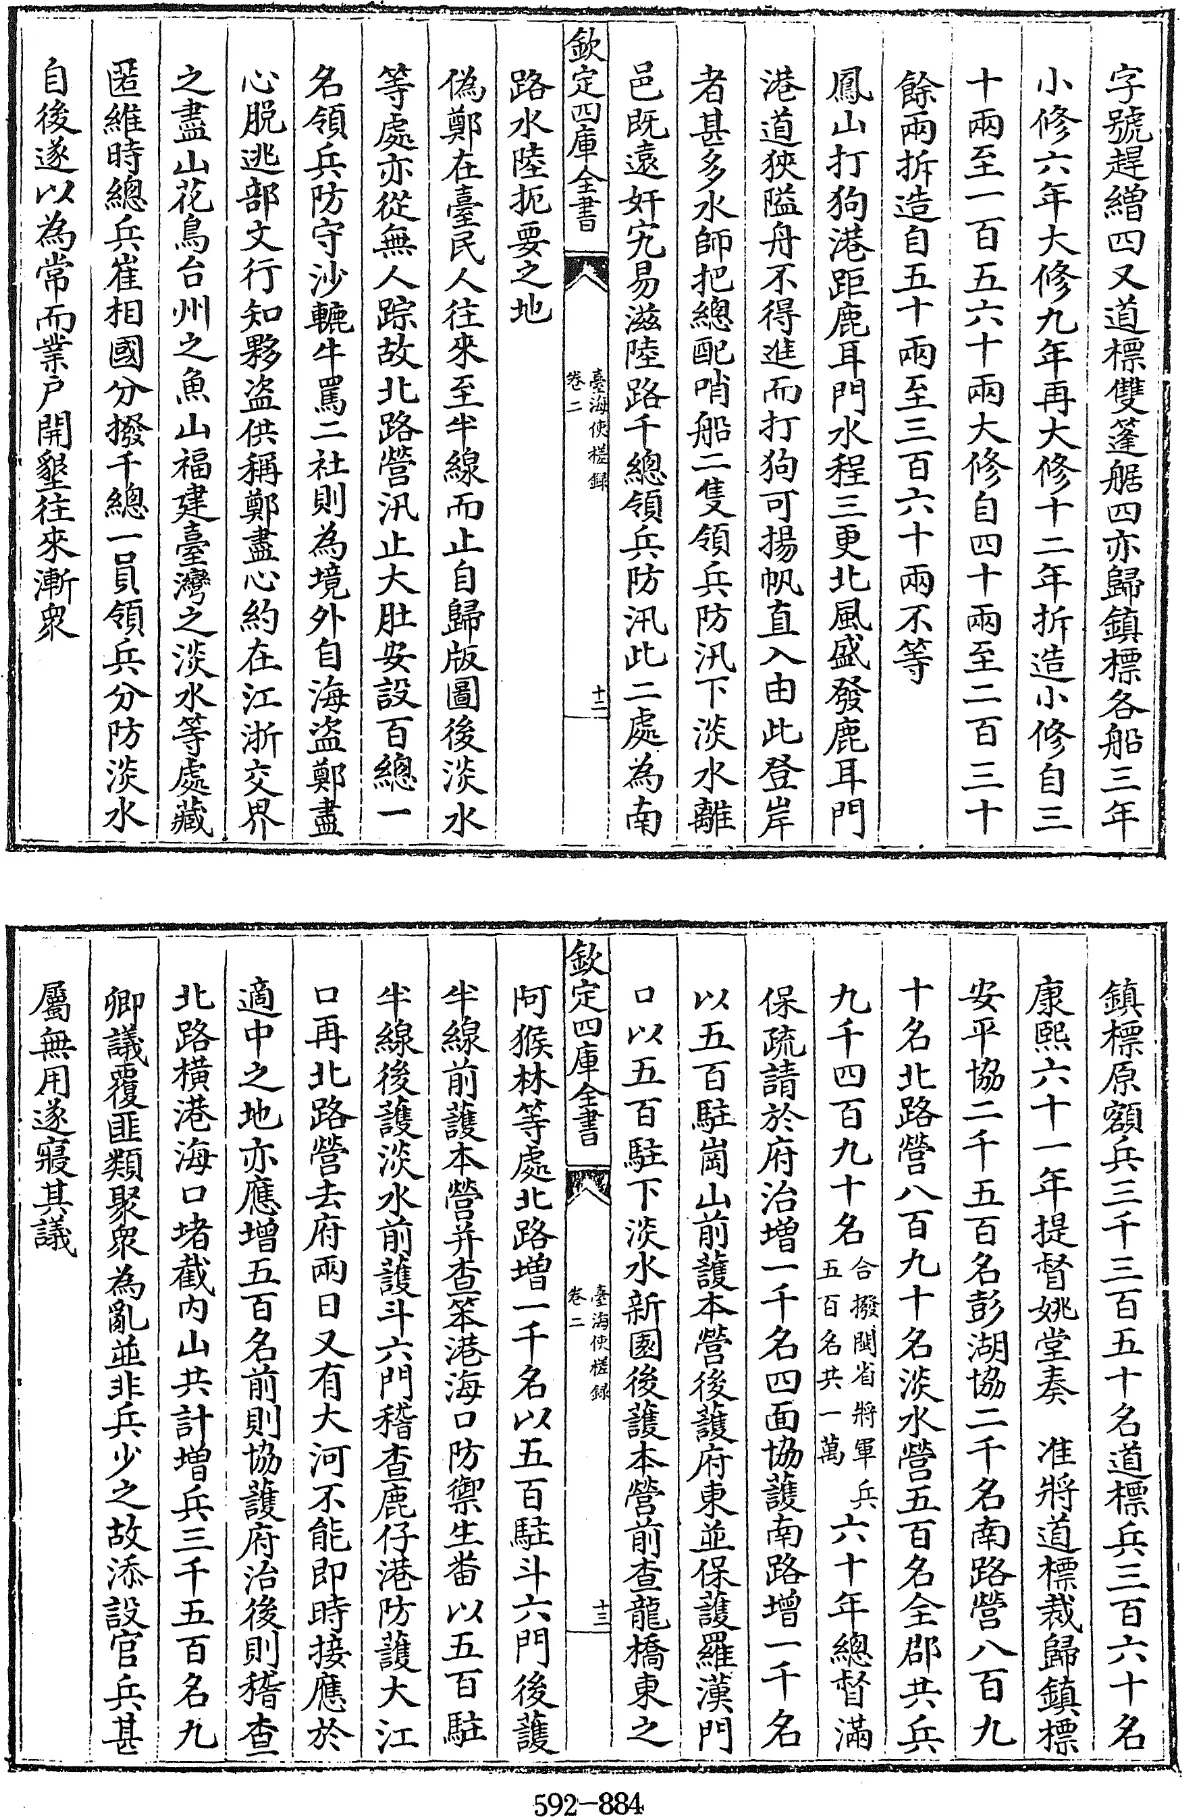 字號趕繒四又道標雙篷艍四亦歸鎮標各船三年
小修六年大修九年再大修十二年拆造小修自三
十兩至一百五六十兩大修自四十兩至二百三十
餘兩拆造自五十兩至三百六十兩不等
鳳山打狗港距鹿耳門水程三更北風盛發鹿耳門
港道狹隘舟不得進而打狗可揚帆直入由此登岸
者甚多水師把總配哨船二隻領兵防汛下淡水離
邑既遠奸宄易滋陸路千總領兵防汛此二處為南
欽定四庫全書
臺海使槎録
卷二
十二
路水陸扼要之地
偽鄭在臺民人往來至半線而止自歸版圖後淡水
等處亦從無人踪故北路營汛止大肚安設百總一
名領兵防守沙轆牛罵二社則為境外自海盜鄭盡
心脱逃部文行知夥盜供稱鄭盡心約在江浙交界
之盡山花鳥台州之魚山福建臺灣之淡水等處藏
匿維時總兵崔相國分撥千總一員領兵分防淡水
自後遂以為常而業户開墾往來漸衆
鎮標原額兵三千三百五十名道標兵三百六十名
康熙六十一年提督姚堂奏　准將道標裁歸鎮標
安平協二千五百名彭湖協二千名南路營八百九
十名北路營八百九十名淡水營五百名全郡共兵
九千四百九十名合撥閩省將軍兵五百名共一萬六十年總督滿
保疏請於府治增一千名四面協護南路增一千名
以五百駐崗山前護本營後護府東並保護羅漢門
口以五百駐下淡水新園後護本營前查龍橋東之
欽定四庫全書
臺海使槎録
卷二
十三
阿猴林等處北路增一千名以五百駐斗六門後護
半線前護本營并查笨港海口防禦生畨以五百駐
半線後護淡水前護斗六門稽查鹿仔港防護大江
口再北路營去府兩日又有大河不能即時接應於
適中之地亦應增五百名前則協護府治後則稽查
北路橫港海口堵截内山共計增兵三千五百名九
卿議覆匪類聚衆為亂並非兵少之故添設官兵甚
屬無用遂寢其議
592-884